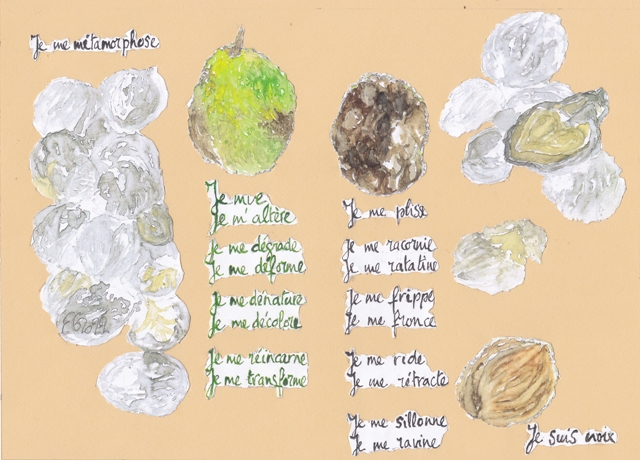 Je me métamorphose
Je mue
Je m'altère
Je me dégrade
Je me déforme
Je me dénature
Je me décolore
Je me réincarne
Je me transforme
Je me plisse
Je me racornie
Je me ratatine
Je me frippe
Je me fronce
Je me ride
Je me rétracte
Je me sillonne
Je me ravine
Je suis noix